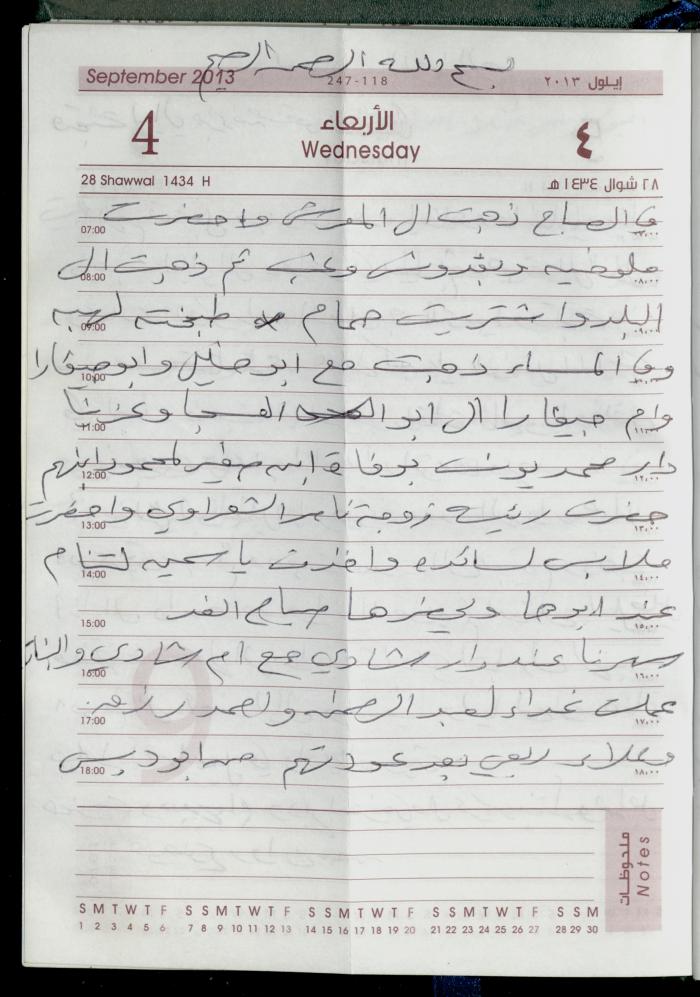 بسم الله الرحمن الرحيم
September 2013 247-118 ايلول ٢٠١٣
4 الأربعاء ٤
Wednesday
28 Shawwal 1434 H ٢٨ شوال ١٤٣٤ هـ
في الصباح ذهبت الى المفرش واحضرت
07:00 ٠٧:٠٠
ملوخيه وبقدونس وعنب ثم ذهبت الى
08:00 ٠٨:٠٠
البلد واشتريت حمام طبخته لهبه
09:00 ٠٩:٠٠
وفي المساء ذهبت مع ابو خليل وابو صيقارا
10:00 ١٠:٠٠
وام صيقارا الى ابو العبد الفحجا وعزينا
11:00 ١١:٠٠
دار محمد يونس بوفاة ابن صغير لمحمود ابنهم
12:00 ١٢:٠٠
حضرت رئيسة زوجة ناصر الشعراوي واحضرت
13:00 ١٣:٠٠
ملابس لسائده واخذت ياسمين لتنام
14:00 ١٤:٠٠
عند ابوها ويحضرها صباح الغد
15:00 ١٥:٠٠
سهرنا عند دار شادي مع ام شادي والبنات
16:00 ١٦:٠٠
عملت غداء لعبد الرحمن واحمد رزق
17:00 ١٧:٠٠
وعلاء ربعي بعد عودتهم من ابو ديس
18:00 ١٨:٠٠
ملحوظات Notes
S M T W T F S S M T W T F S S M T W T F S S M T W T F S S M
1 2 3 4 5 6 7 8 9 10 11 12 13 14 15 16 17 18 19 20 21 22 23 24 25 26 27 28 29 30